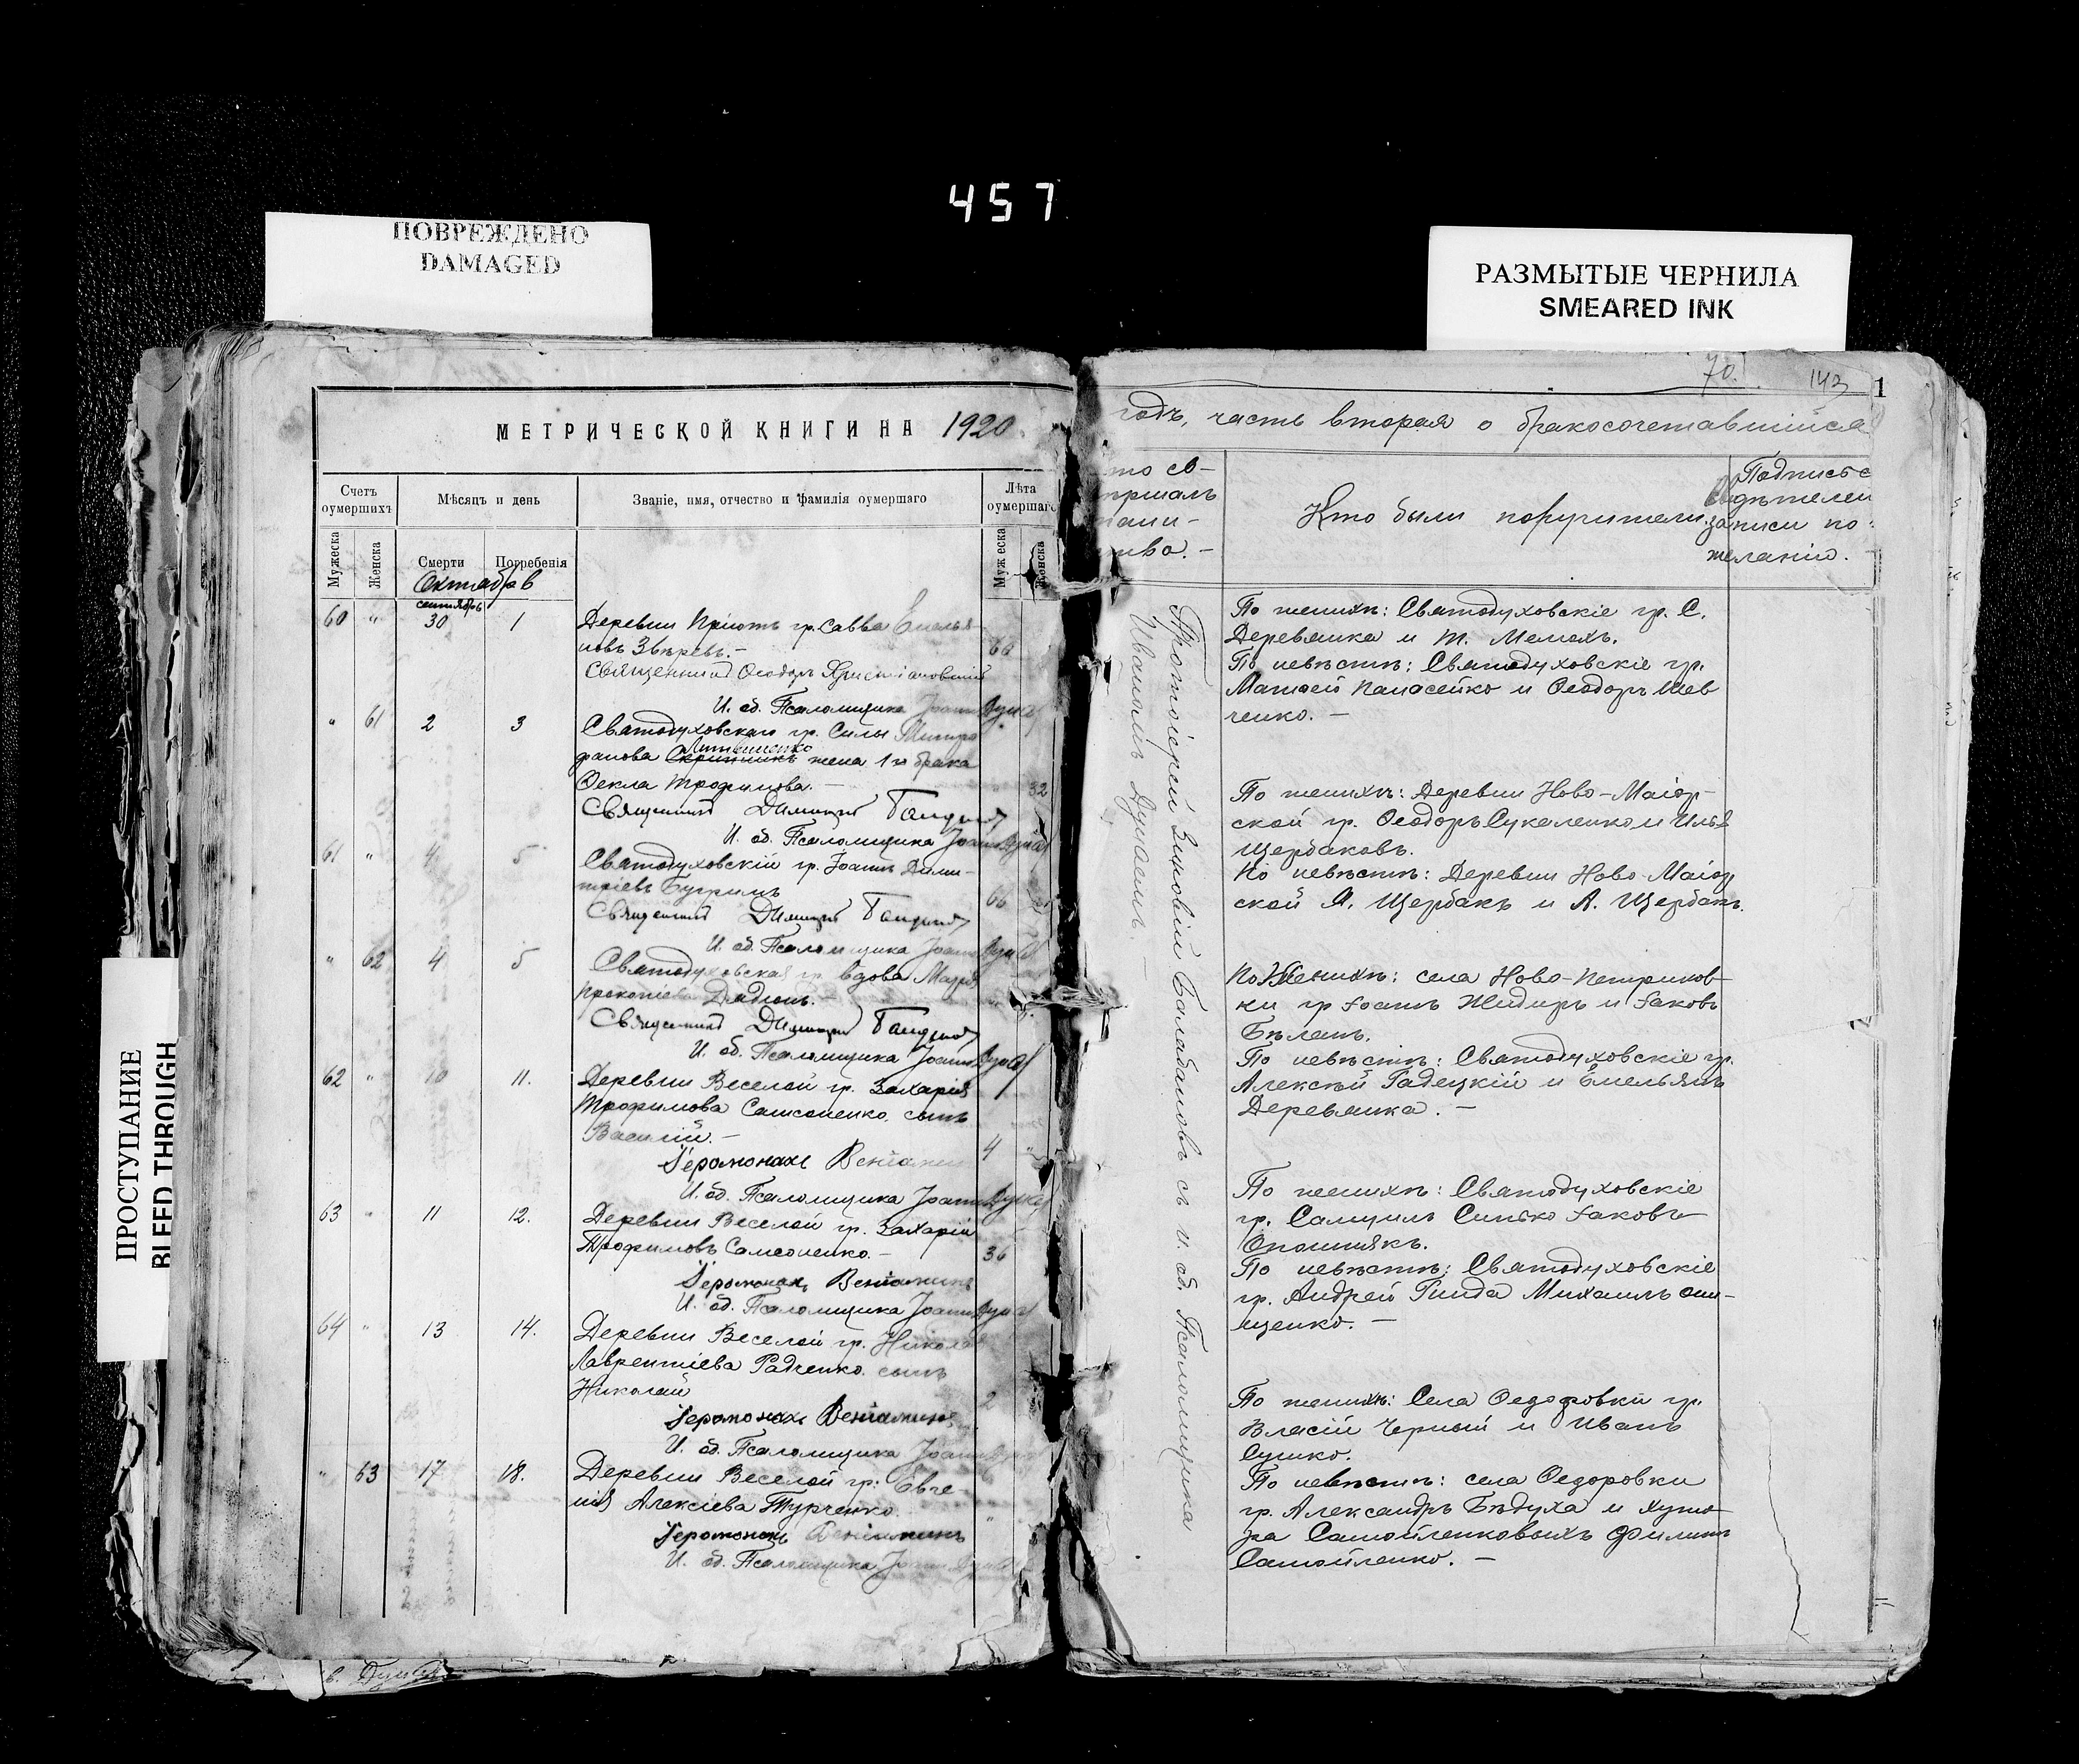 457
ПОВРЕЖДЕНО
DAMAGED
РАЗМЫТЫЕ ЧЕРНИЛА
SMEARED INK
ПРОСТУПАНИЕ
BLEED THROUGH
МЕТРИЧЕСКОЙ КНИГИ НА 1920
Счетъ умершихъ
Мѣсяцъ и день
Званіе, имя, отчество и фамилія умершаго
Лѣта умершаго
Мужеска
Женска
Смерти
Погребенія
Мужеска
Женска
Октябрь
сентябрь
60 " 30 1 Деревни Пріютъ гр. Савва Емелья
новъ Звѣревъ.–
66
Священникъ Ѳеодоръ
И. об. Псаломщика Іоаннъ Дунай
" 61 2 3 Святодуховскаго гр. Силы Митро
фанова Литвиненко жена 1го брака
Ѳекла Трофимова.– 32
Священникъ Димитрій
И. об. Псаломщика Іоаннъ Дунай
61 " 4 5 Святодуховскій гр. Іоаннъ Дими-
тріевъ 66
Священникъ Димитрій
И. об. Псаломщика Іоаннъ Дунай
" 62 4 5 Святодуховская гр. вдова
Прокопіева
Священникъ Димитрій
И. об. Псаломщика Іоаннъ Дунай
62 " 10 11. Деревни Веселой гр. Захарія
Трофимова Самсоненко, сынъ
Василій.– 4
Іеромонахъ Веніаминъ
И. об. Псаломщика Іоаннъ Дунай
63 " 11 12. Деревни Веселой гр. Захарій
Трофимовъ Самсоненко.– 36
Іеромонахъ Веніаминъ
И. об. Псаломщика Іоаннъ Дунай
64 " 13 14. Деревни Веселой гр. Николая
Лаврентіева Радченко сынъ
Николай 2
Іеромонахъ Веніаминъ
И. об. Псаломщика Іоаннъ
" 63 17 18. Деревни Веселой гр. Евге-
нія Алексіева Турченко
Іеромонахъ Веніаминъ
И. об. Псаломщика Іоаннъ Дунай
70.
143
1
годъ, часть вторая о бракосочетавшихся
Кто были поручители.
Подпись с
видѣтелей
записи по
желанію.–
Протоіерей Зиновій Балабановъ съ и. об. Псаломщика
Иваномъ Дунаемъ.
По женихѣ: Святодуховскіе гр. С.
Деревянка и Т.
По невѣстѣ: Святодуховскіе гр.
Матѳей Панасейко и Ѳеодоръ Шев
ченко.–
По женихѣ: Деревни Ново-Маіор-
ской гр. Ѳеодоръ Сукаленко и Илья
Щербаковъ.
По невѣстѣ: Деревни Ново-Маіор
ской М. Щербакъ и А. Щербакъ.
По женихѣ: села Ново-Петриков-
ки гр Іоаннъ и Іаковъ
Бѣланъ.
По невѣстѣ: Святодуховскіе гр.
Алексѣй Гадецкій и Емельянъ
Деревянка.–
По женихѣ: Святодуховскіе
гр. Самуилъ Синько Іаковъ
Опошнякъ.
По невѣстѣ: Святодуховскіе
гр. Андрей Гинда Михаилъ Они-
щенко.–
По женихѣ: Села Ѳедоровки гр.
Власій Черный и Иванъ
Сушко.
По невѣстѣ: села Ѳедоровки
гр. Александръ Бѣдуха и Хуто
ра Самойленковыхъ Филиппъ
Самойленко.–